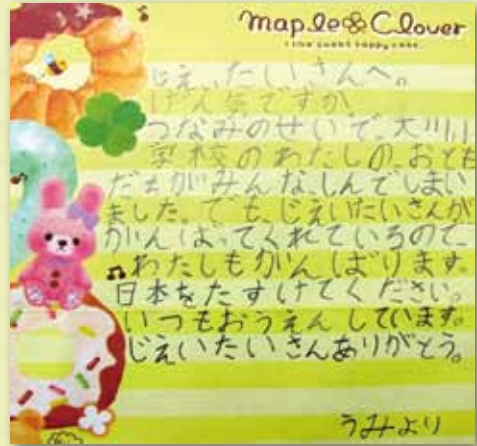 maple Clover
I like sweet happy cake.
じえ、たいさんへ。
げん気ですか。
つなみのせいで、大川小
学校のわたしの、おとも
だちがみんな、しんでしまい
ました。でも、じえいたいさんが
がんばってくれているので、
わたしもがんばります。
日本をたすけてください。
いつもおうえんしています。
じえいたいさんありがとう。
うみより